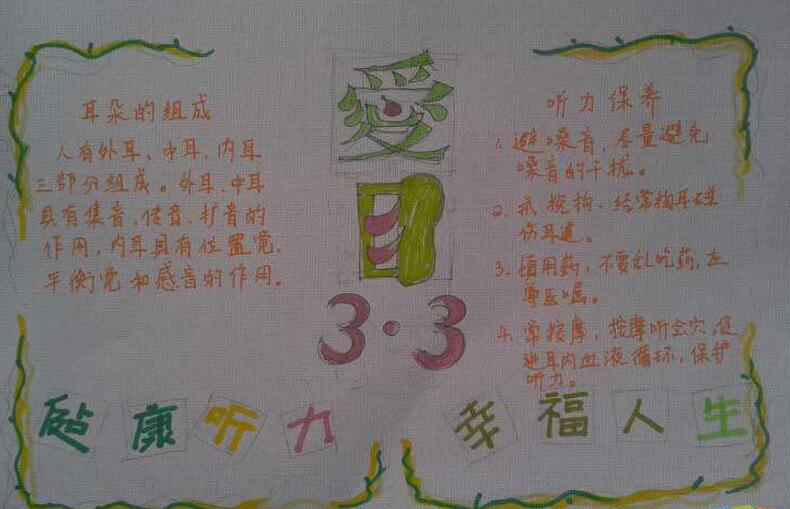 耳朵的组成
人有外耳、中耳、内耳
三部分组成。外耳、中耳
具有集音、传音、扩音的
作用，内耳具有位置觉、
平衡觉和感音的作用。
爱
3·3
听力保养
1. 避噪音，尽量避免
噪音的干扰。
2. 戒挖掏、经常掏耳碰
伤耳道。
3. 慎用药，不要乱吃药，
遵医嘱。
4. 常按摩，按摩听会穴，促
进耳内血液循环，保护
听力。
康听力
幸福人生